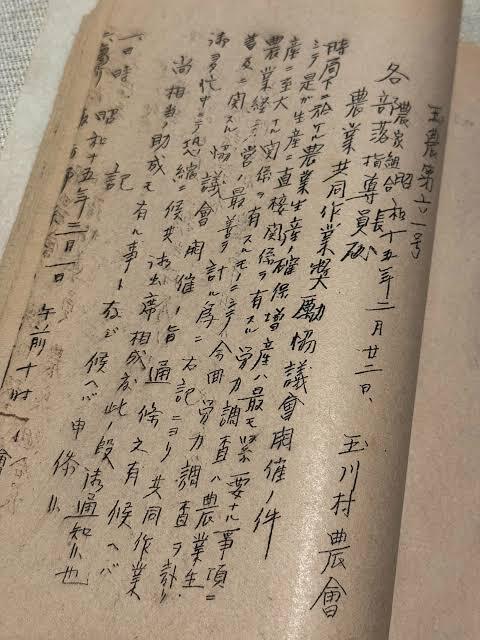 玉農第六一号
昭和十五年二月廿二日、
玉川村農會
各農家組合長
部落指導員殿
農業共同作業奬勵協議會開催ノ件
時局下ニ於ケル農業生産ノ確保増産ハ最モ緊要ナル事項ニ
シテ是ガ生産ニ直接関係ヲ有スル労力調査ハ農業生
産ニ至大ナル関係ヲ有スルモノニシテ今回労力調査ヲ
農業経営ノ最善ヲ計ル序ニ右記ニヨリ共同作業
普及ニ関スル協議會開催ノ旨通牒之有候ヘバ
御多忙中ニテ恐縮ニ候共御出席相成度此ノ段御通知候也
尚相当ノ助成モ有ル事ト存ジ候ヘバ申添
記
一日時 昭和十五年三月一日 午前十時